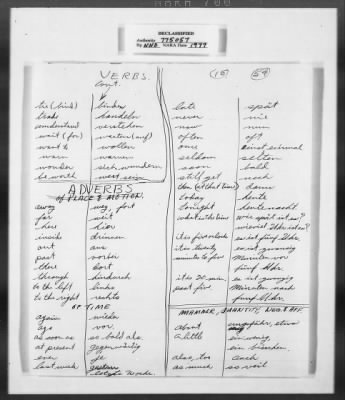 DECLASSIFIED
Authority 775057
By NND NARA Date 1977
VERBS.
Cont.
(18)
54
tie (bind) binden
trade handeln
understand verstehen
wait (for) warten (auf)
want to wollen
warn warnen
wonder sich wundern
be worth wert sein
ADVERBS
OF PLACE & MOTION.
away weg, fort
far weit
here hier
inside drinnen
out aus
past vorbei
there dort
through hindurch
to the left links
to the right rechts
OF TIME
again wieder
ago vor
as soon as so bald als
at present gegenwärtig
ever je
last week
letzte Woche
late spät
never nie
now nun
often oft
once einst, einmal
seldom selten
soon bald
still, yet noch
then (at that time) dann
today heute
tonight heute nacht
what is the time wie spät ist es?
wieviel Uhr ist es?
it is five o'clock es ist fünf Uhr.
it is twenty es ist zwanzig
minutes to five Minuten vor
fünf Uhr.
it is 20 min. es ist zwanzig
past five. Minuten nach
fünf Uhr.
MANNER, QUANTITY, NEG. & AFF.
about ungefähr, etwa
a little ein wenig,
ein bisschen.
also, too auch
as much so viel